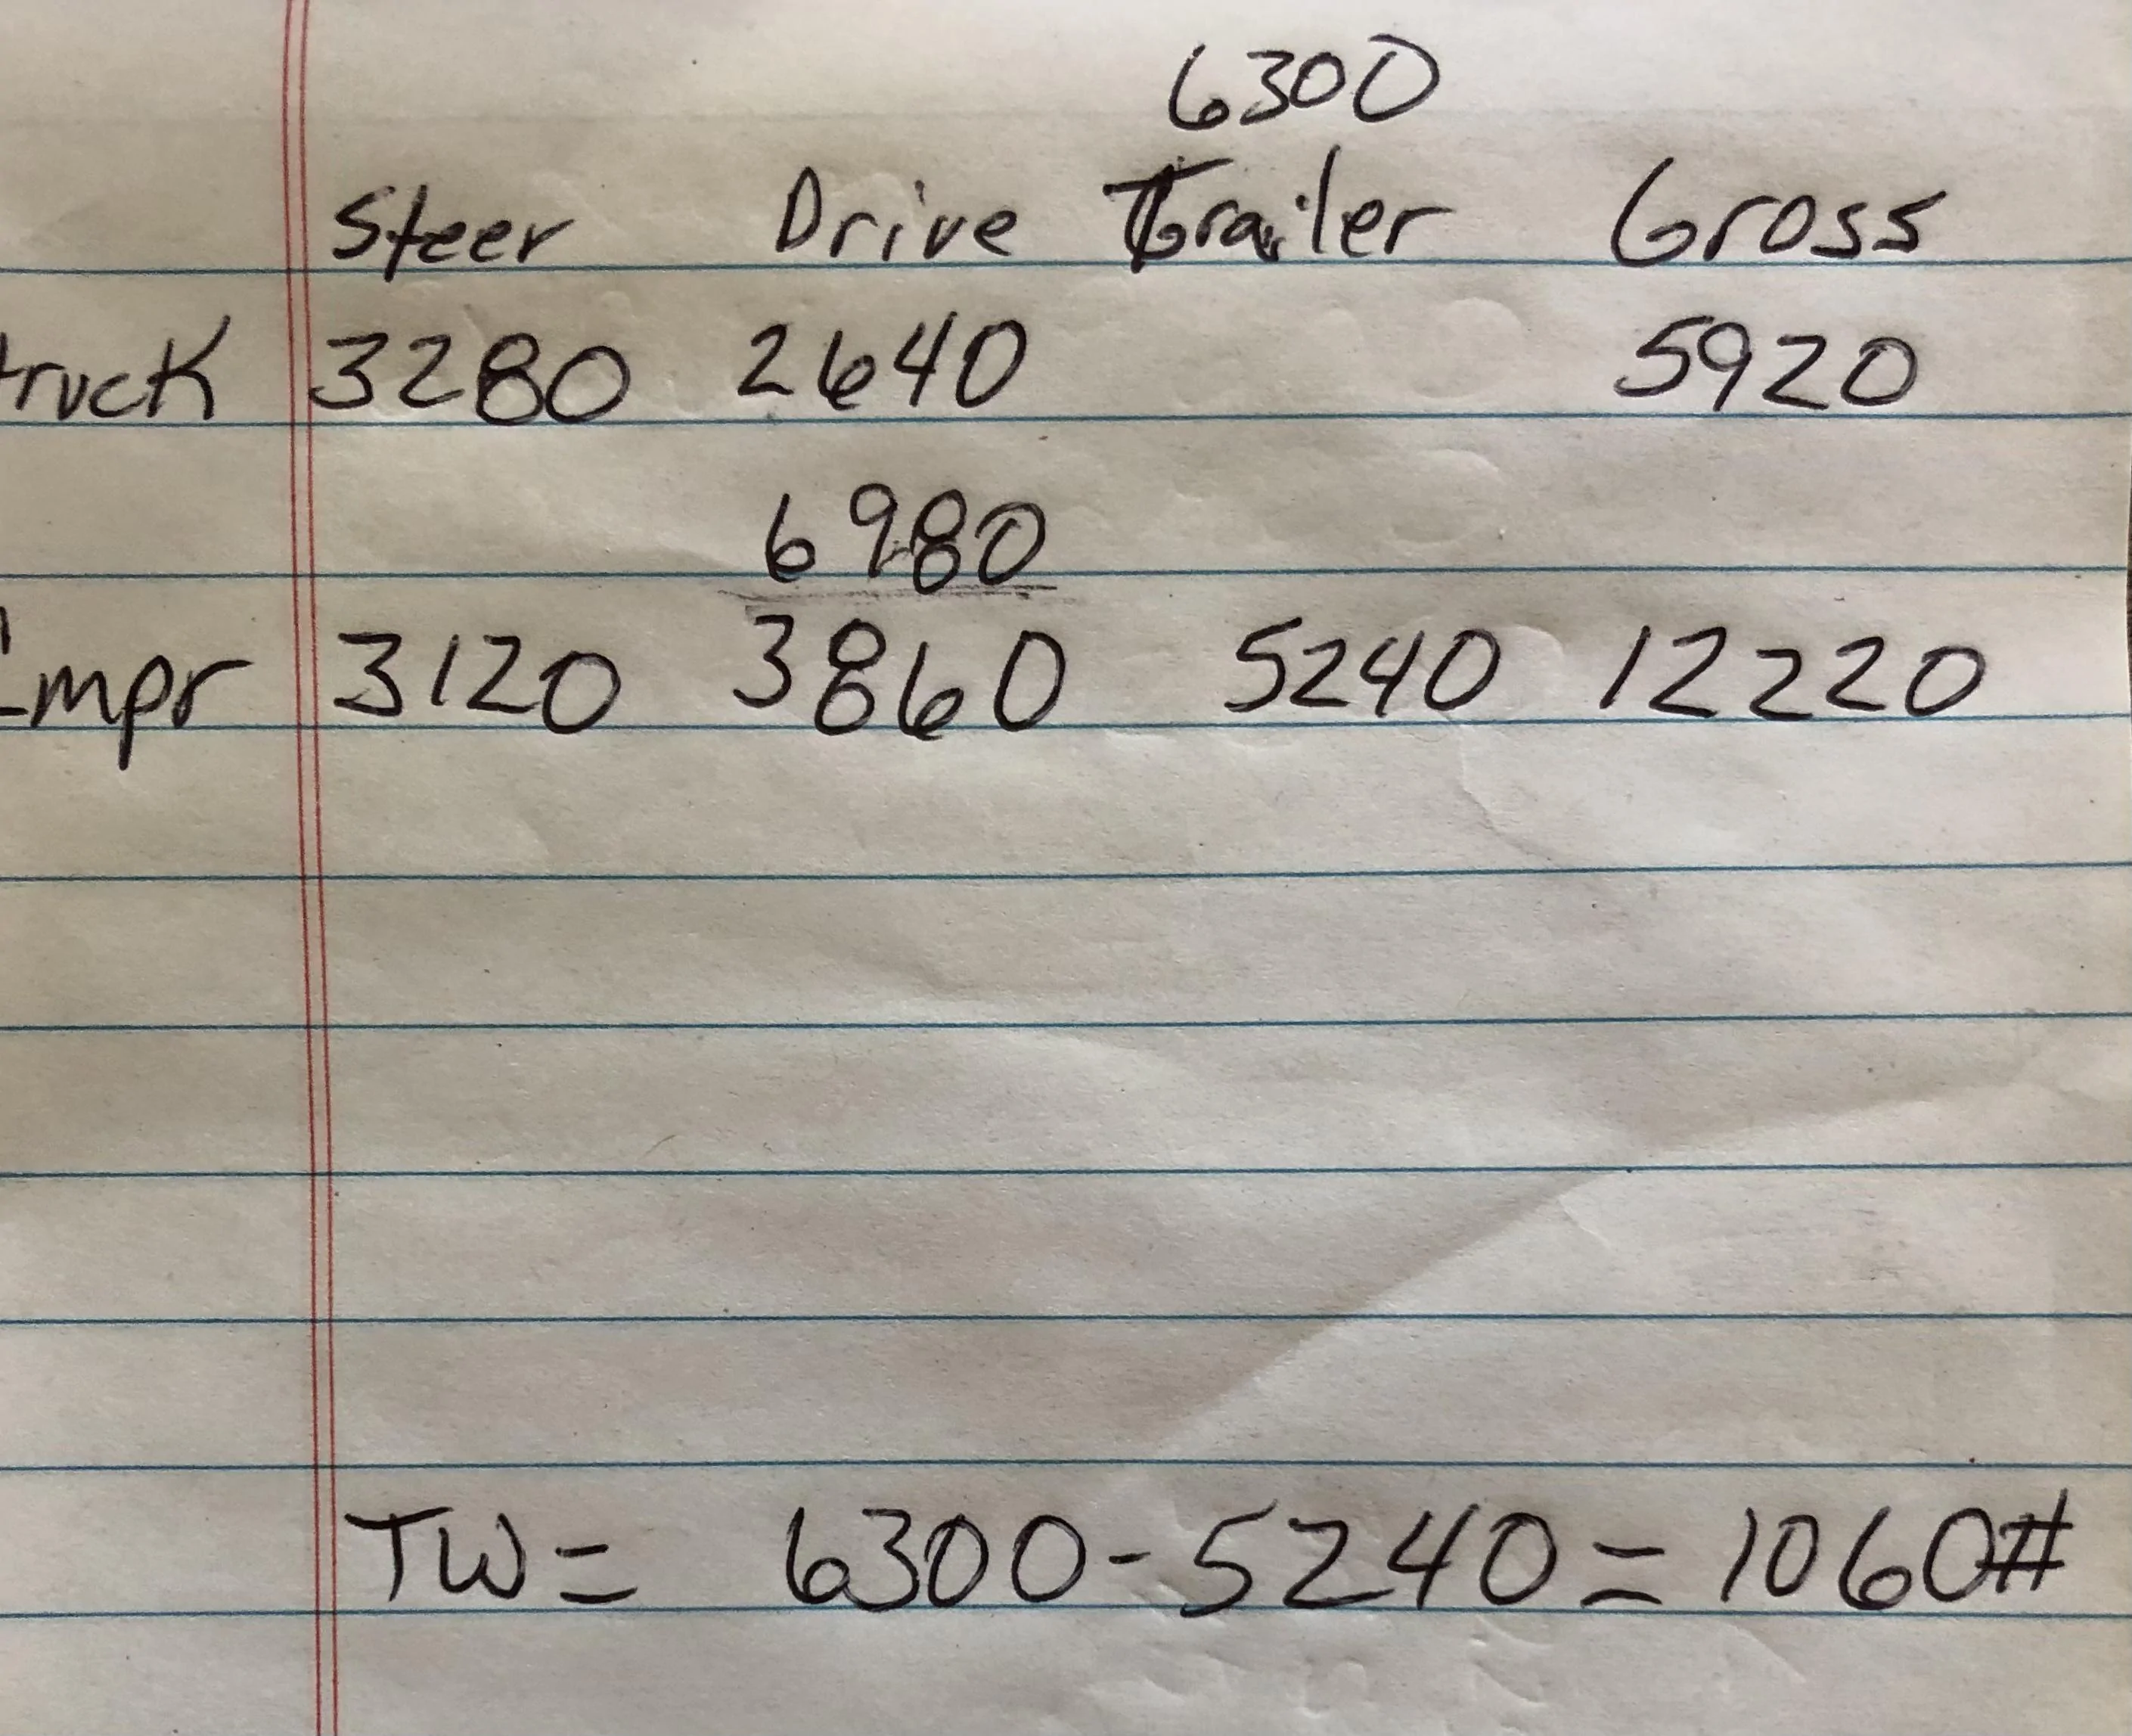 6300
Steer Drive Trailer Gross
truck 3280 2640 5920
6980
Cmpr 3120 3860 5240 12220
TW = 6300 - 5240 = 1060#